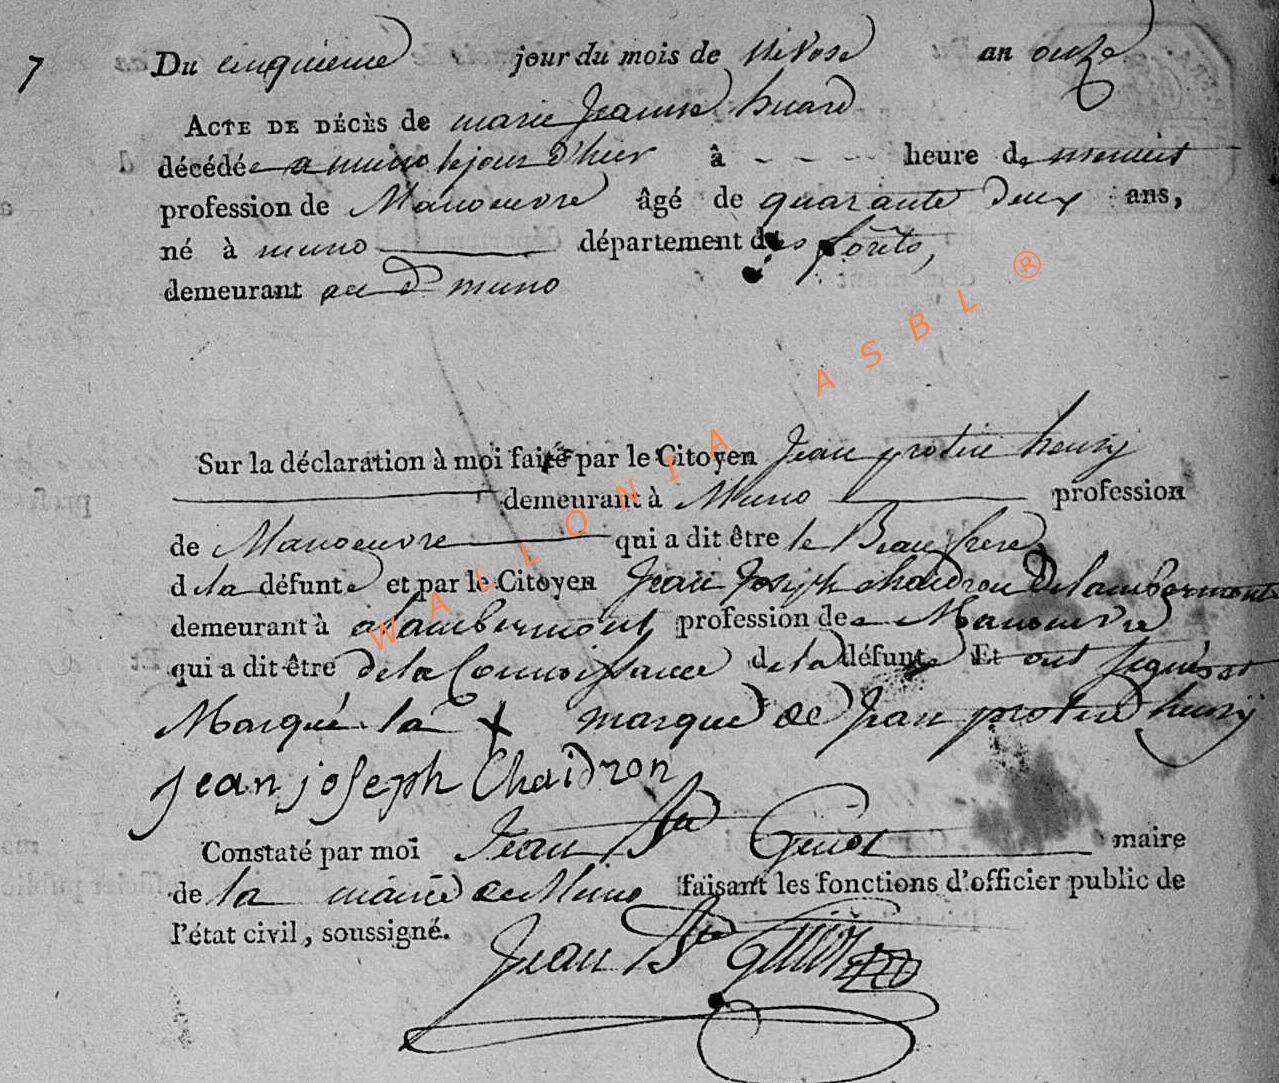 7 Du cinquieme jour du mois de Nivose an onze
ACTE DE DÉCÈS de marie Jeanne huard
décédée a muno le jour d'hier à - - - - heure de menuit
profession de Manoeuvre âgé de quarante Deux ans,
né à muno département des forêts,
demeurant au d muno
Sur la déclaration à moi faite par le Citoyen Jean protin henry
demeurant à Muno profession
de Manoeuvre qui a dit être le Beau frere
de la défunte et par le Citoyen Jean Joseph chaidron De lambermont
demeurant à a lambermont profession de Manoeuvre
qui a dit être De la Connoissance de la défunte Et ont signés et
Marqué la X marque de Jean protin henry
Jean joseph Chaidron
Constaté par moi Jean Bte Genot maire
de la mairie de Muno faisant les fonctions d'officier public de
l'état civil, soussigné.
Jean Bte genot
WALLONIA ASBL ®